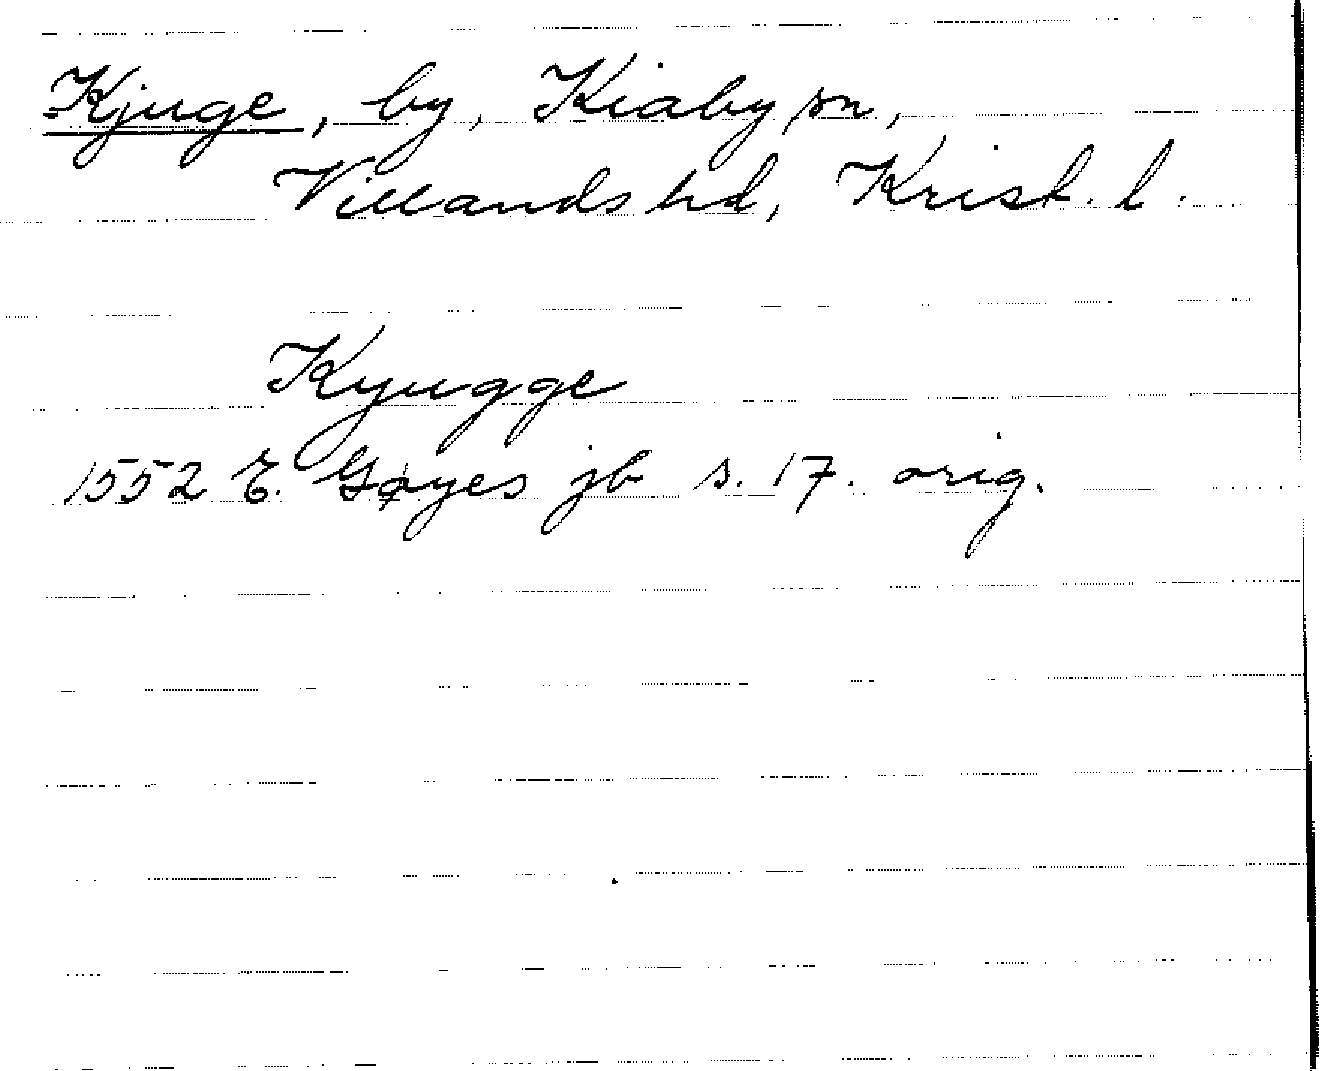 Kjuge, by, Kiaby sn,
Villands hd, Krist. l.
Kyugge
1552 E. Gøyes jb s. 17. orig.